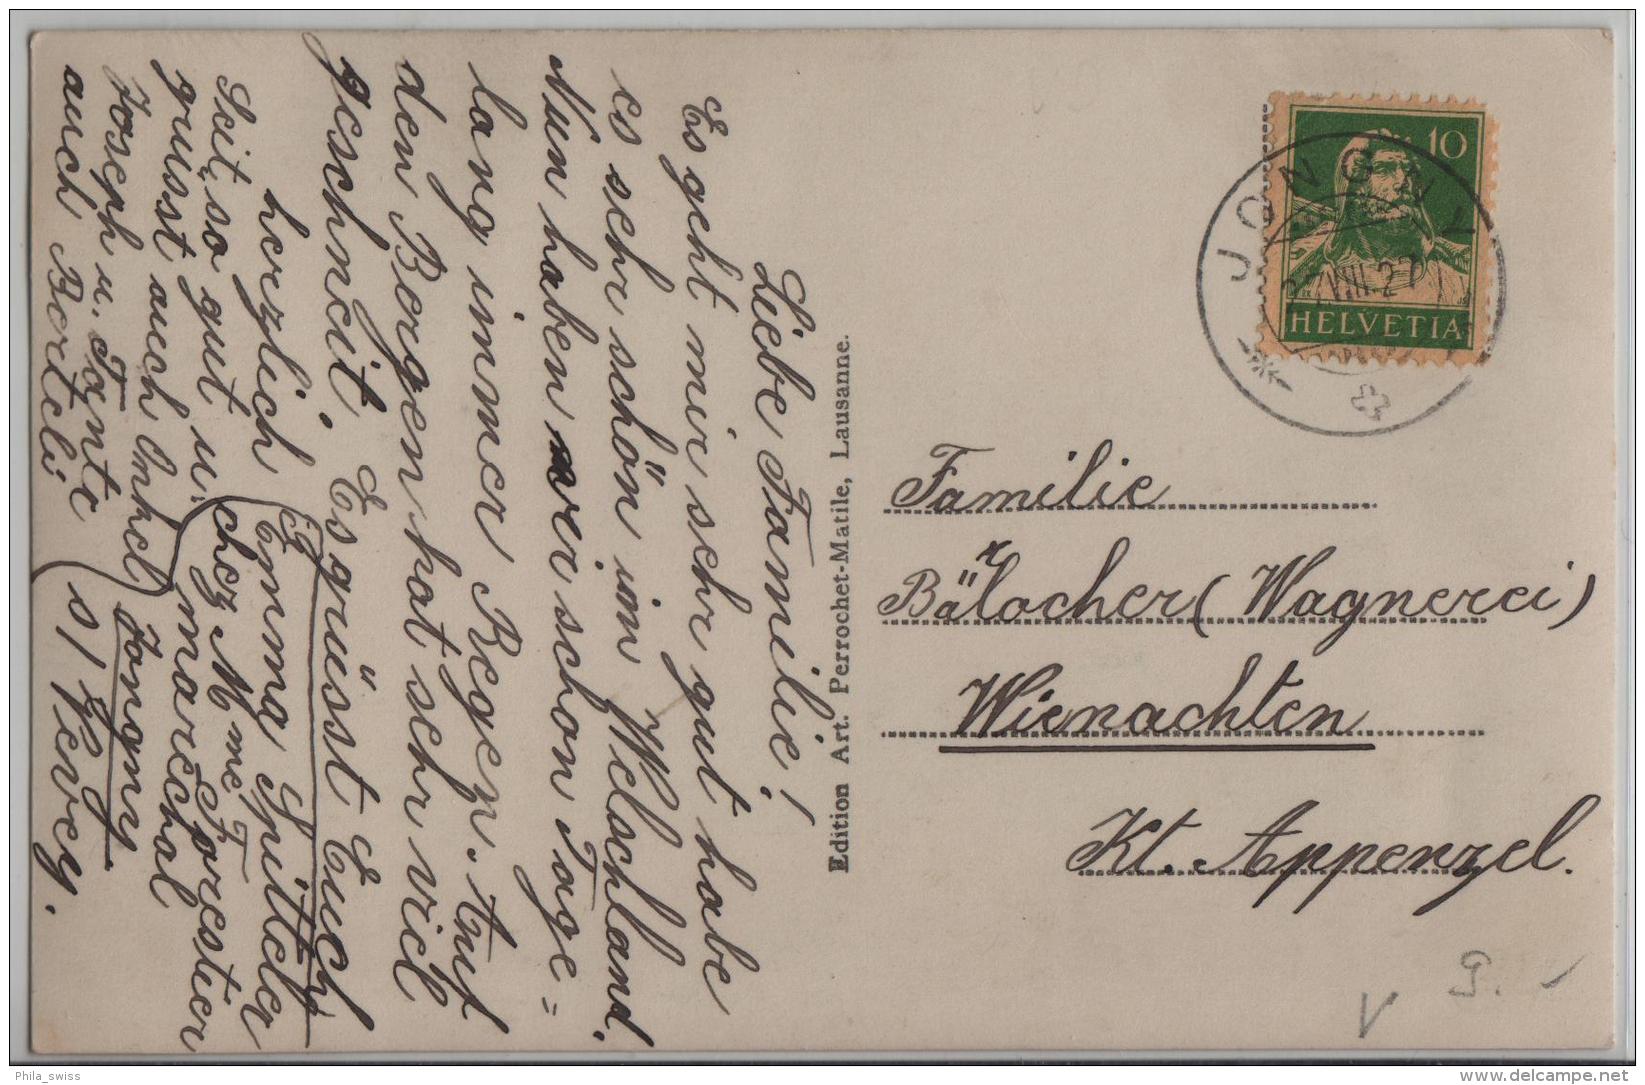 Liebe Familie!
Es geht mir sehr gut habe
es sehr schön im Welschland.
Nun haben wir schon Tage=
lang immer Regen. Auf
den Bergen hat sehr viel
geschneit. Es grüsst Euch
herzlich
Emma Spitteler
Seit so gut u.
grüsst auch Onkel
Joseph u. Tante
auch Berteli
chez Mme T Forestier
maréchal
Jongny
s/ Vevey.
Edition Art. Perrochet-Matile, Lausanne.
10
HELVETIA
JONGNY
VIII.27
Familie
Bärlocher (Wagnerei)
Wienachten
Kt. Appenzel.
Phila_swiss
delcampe.net